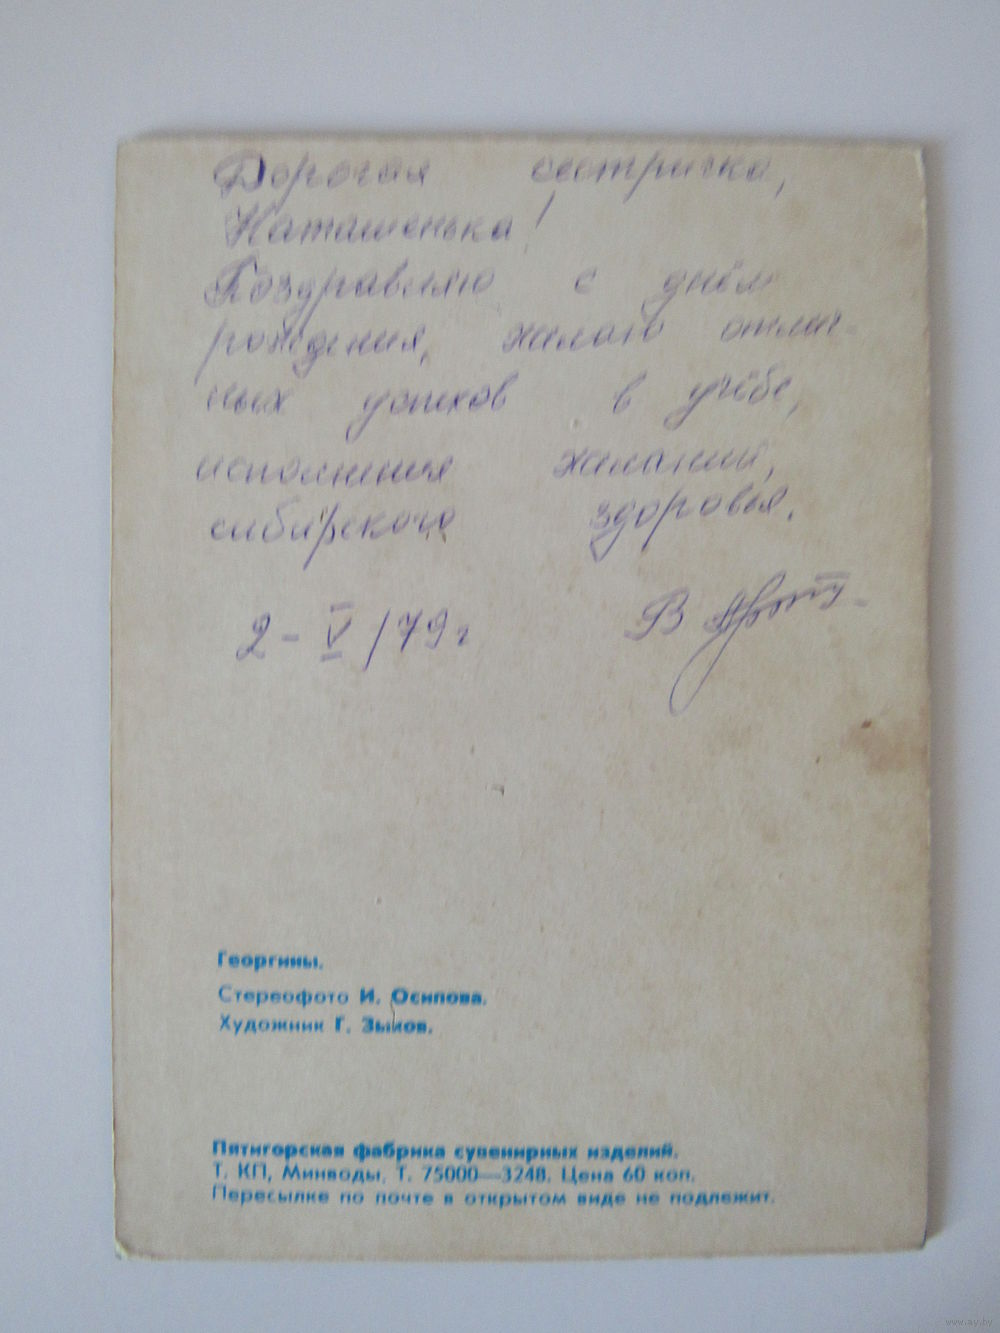 Дорогая сестричка,
Наташенька!
Поздравляю с днём
рождения, желаю отлич-
ных успехов в учёбе,
исполнения желаний,
сибирского здоровья.
2-V/79г В
Георгины.
Стереофото И. Осипова.
Художник Г. Зыков.
Пятигорская фабрика сувенирных изделий.
Т. КП, Минводы, Т. 75000—3248. Цена 60 коп.
Пересылке по почте в открытом виде не подлежит.
www.ay.by